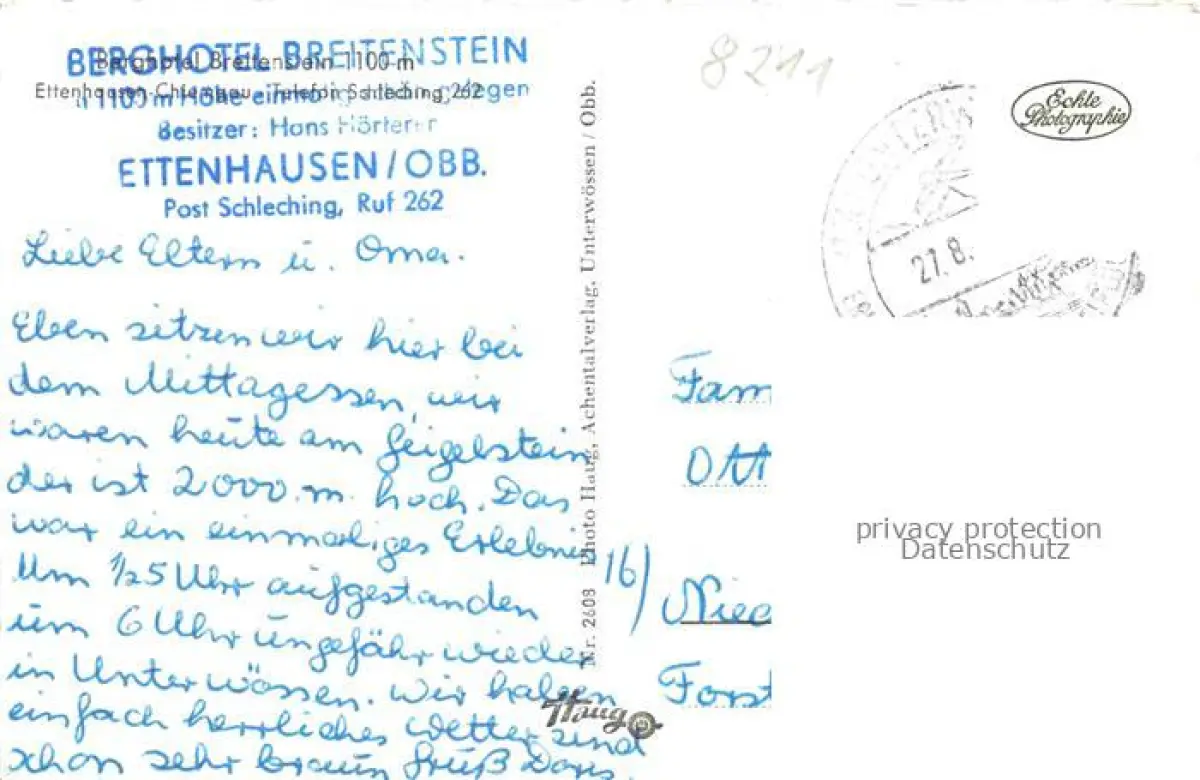 BERGHOTEL BREITENSTEIN
Berghotel Breitenstein 1100 m
Ettenhausen Chiemgau - Telefon Schleching 262
1100 m Höhe einmalig schön gelegen
Besitzer: Hans Hörterer
ETTENHAUSEN/OBB.
Post Schleching, Ruf 262
Liebe Eltern u. Oma.
Eben sitzen wir hier bei
dem Mittagessen, wir
waren heute am Geigelstein
der ist 2000 m. hoch. Das
war ein einmaliges Erlebnis
Um 1/25 Uhr aufgestanden
um 6 Uhr ungefähr wieder
in Unterwössen. Wir haben
einfach herrliches Wetter sind
schon sehr braun Gruß Doris.
Nr. 2608 Photo Haug, Achentalverlag, Unterwössen / Obb.
Haug
8211
Echte
Photographie
27.8.
Fam
Ott
16)
Nied
Forst
privacy protection
Datenschutz